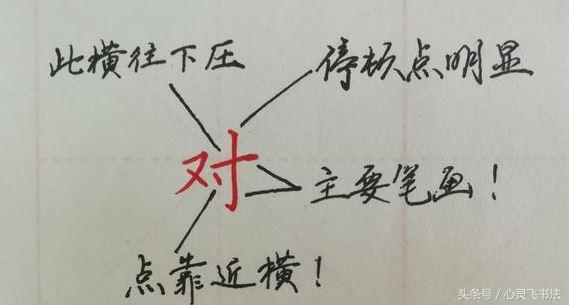 此横往下压
停顿点明显
对
主要笔画！
点靠近横！
头条号／心灵飞书法